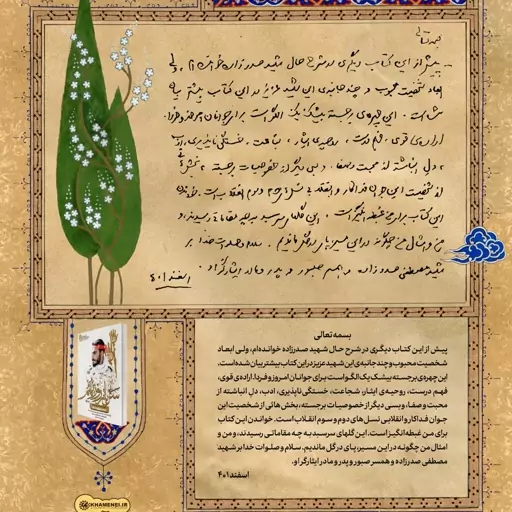 بسمه‌تعالی
پیش از این کتاب دیگری در شرح حال شهید صدرزاده خوانده‌ام، ولی
ابعاد شخصیت محبوب و چند جانبه‌ی این شهید عزیز در این کتاب بیشتر بیان
شده است. این چهره‌ی برجسته بیشک یک الگو است برای جوانان امروز و فردا.
اراده‌ی قوی، فهم درست، روحیه‌ی ایثار، شجاعت، خستگی ناپذیری، ادب،
دل انباشته از محبت و صفا، و بسی دیگر از خصوصیات برجسته، بخش‌هائی
از شخصیت این جوان فداکار و انقلابی نسل‌های دوم و سوم انقلاب است. خواندن
این کتاب برای من غبطه انگیز است. این گلهای سرسبد به چه مقاماتی رسیدند، و
من و امثال من چگونه در این مسیر، پای در گل ماندیم. سلام و صلوات خدا بر
شهید مصطفی صدرزاده و همسر صبور و پدر و مادر ایثارگر او.
اسفند ۴۰۱
بسمه تعالی
پیش از این کتاب دیگری در شرح حال شهید صدرزاده خوانده‌ام، ولی ابعاد
شخصیت محبوب و چند جانبه‌ی این شهید عزیز در این کتاب بیشتر بیان شده است.
این چهره‌ی برجسته بیشک یک الگو است برای جوانان امروز و فردا. اراده‌ی قوی،
فهم درست، روحیه‌ی ایثار، شجاعت، خستگی ناپذیری، ادب، دلِ انباشته از
محبت و صفا، و بسی دیگر از خصوصیات برجسته، بخش هائی از شخصیت این
جوان فداکار و انقلابی نسل های دوم و سوم انقلاب است. خواندن این کتاب
برای من غبطه انگیز است. این گلهای سرسبد به چه مقاماتی رسیدند، و من و
امثال من چگونه در این مسیر، پای در گل ماندیم. سلام و صلوات خدا بر شهید
مصطفی صدرزاده و همسر صبور و پدر و مادر ایثارگر او.
اسفند ۴۰۱
KHAMENEI.IR